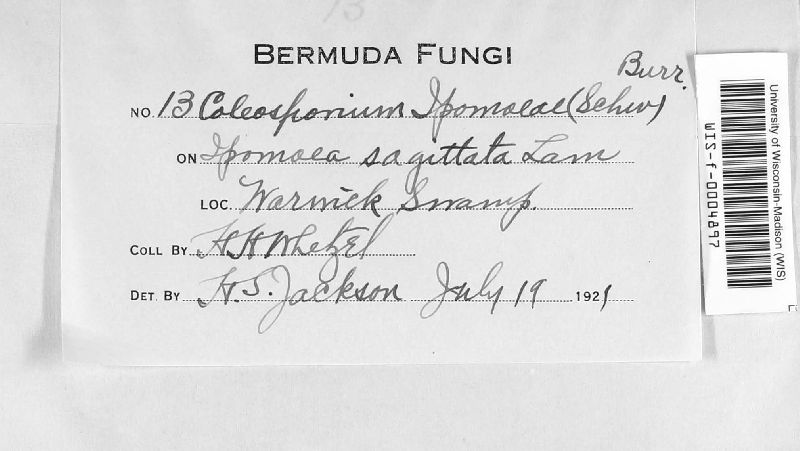 13
BERMUDA FUNGI
Burr.
NO. 13 Coleosporium Ipomoeae (Schw)
ON Ipomoea sagittata Lam
LOC. Warwick Swamp.
COLL BY H H Whetzel
DET. BY H. S. Jackson July 19 1921
University of Wisconsin-Madison (WIS)
WIS-f-0004897